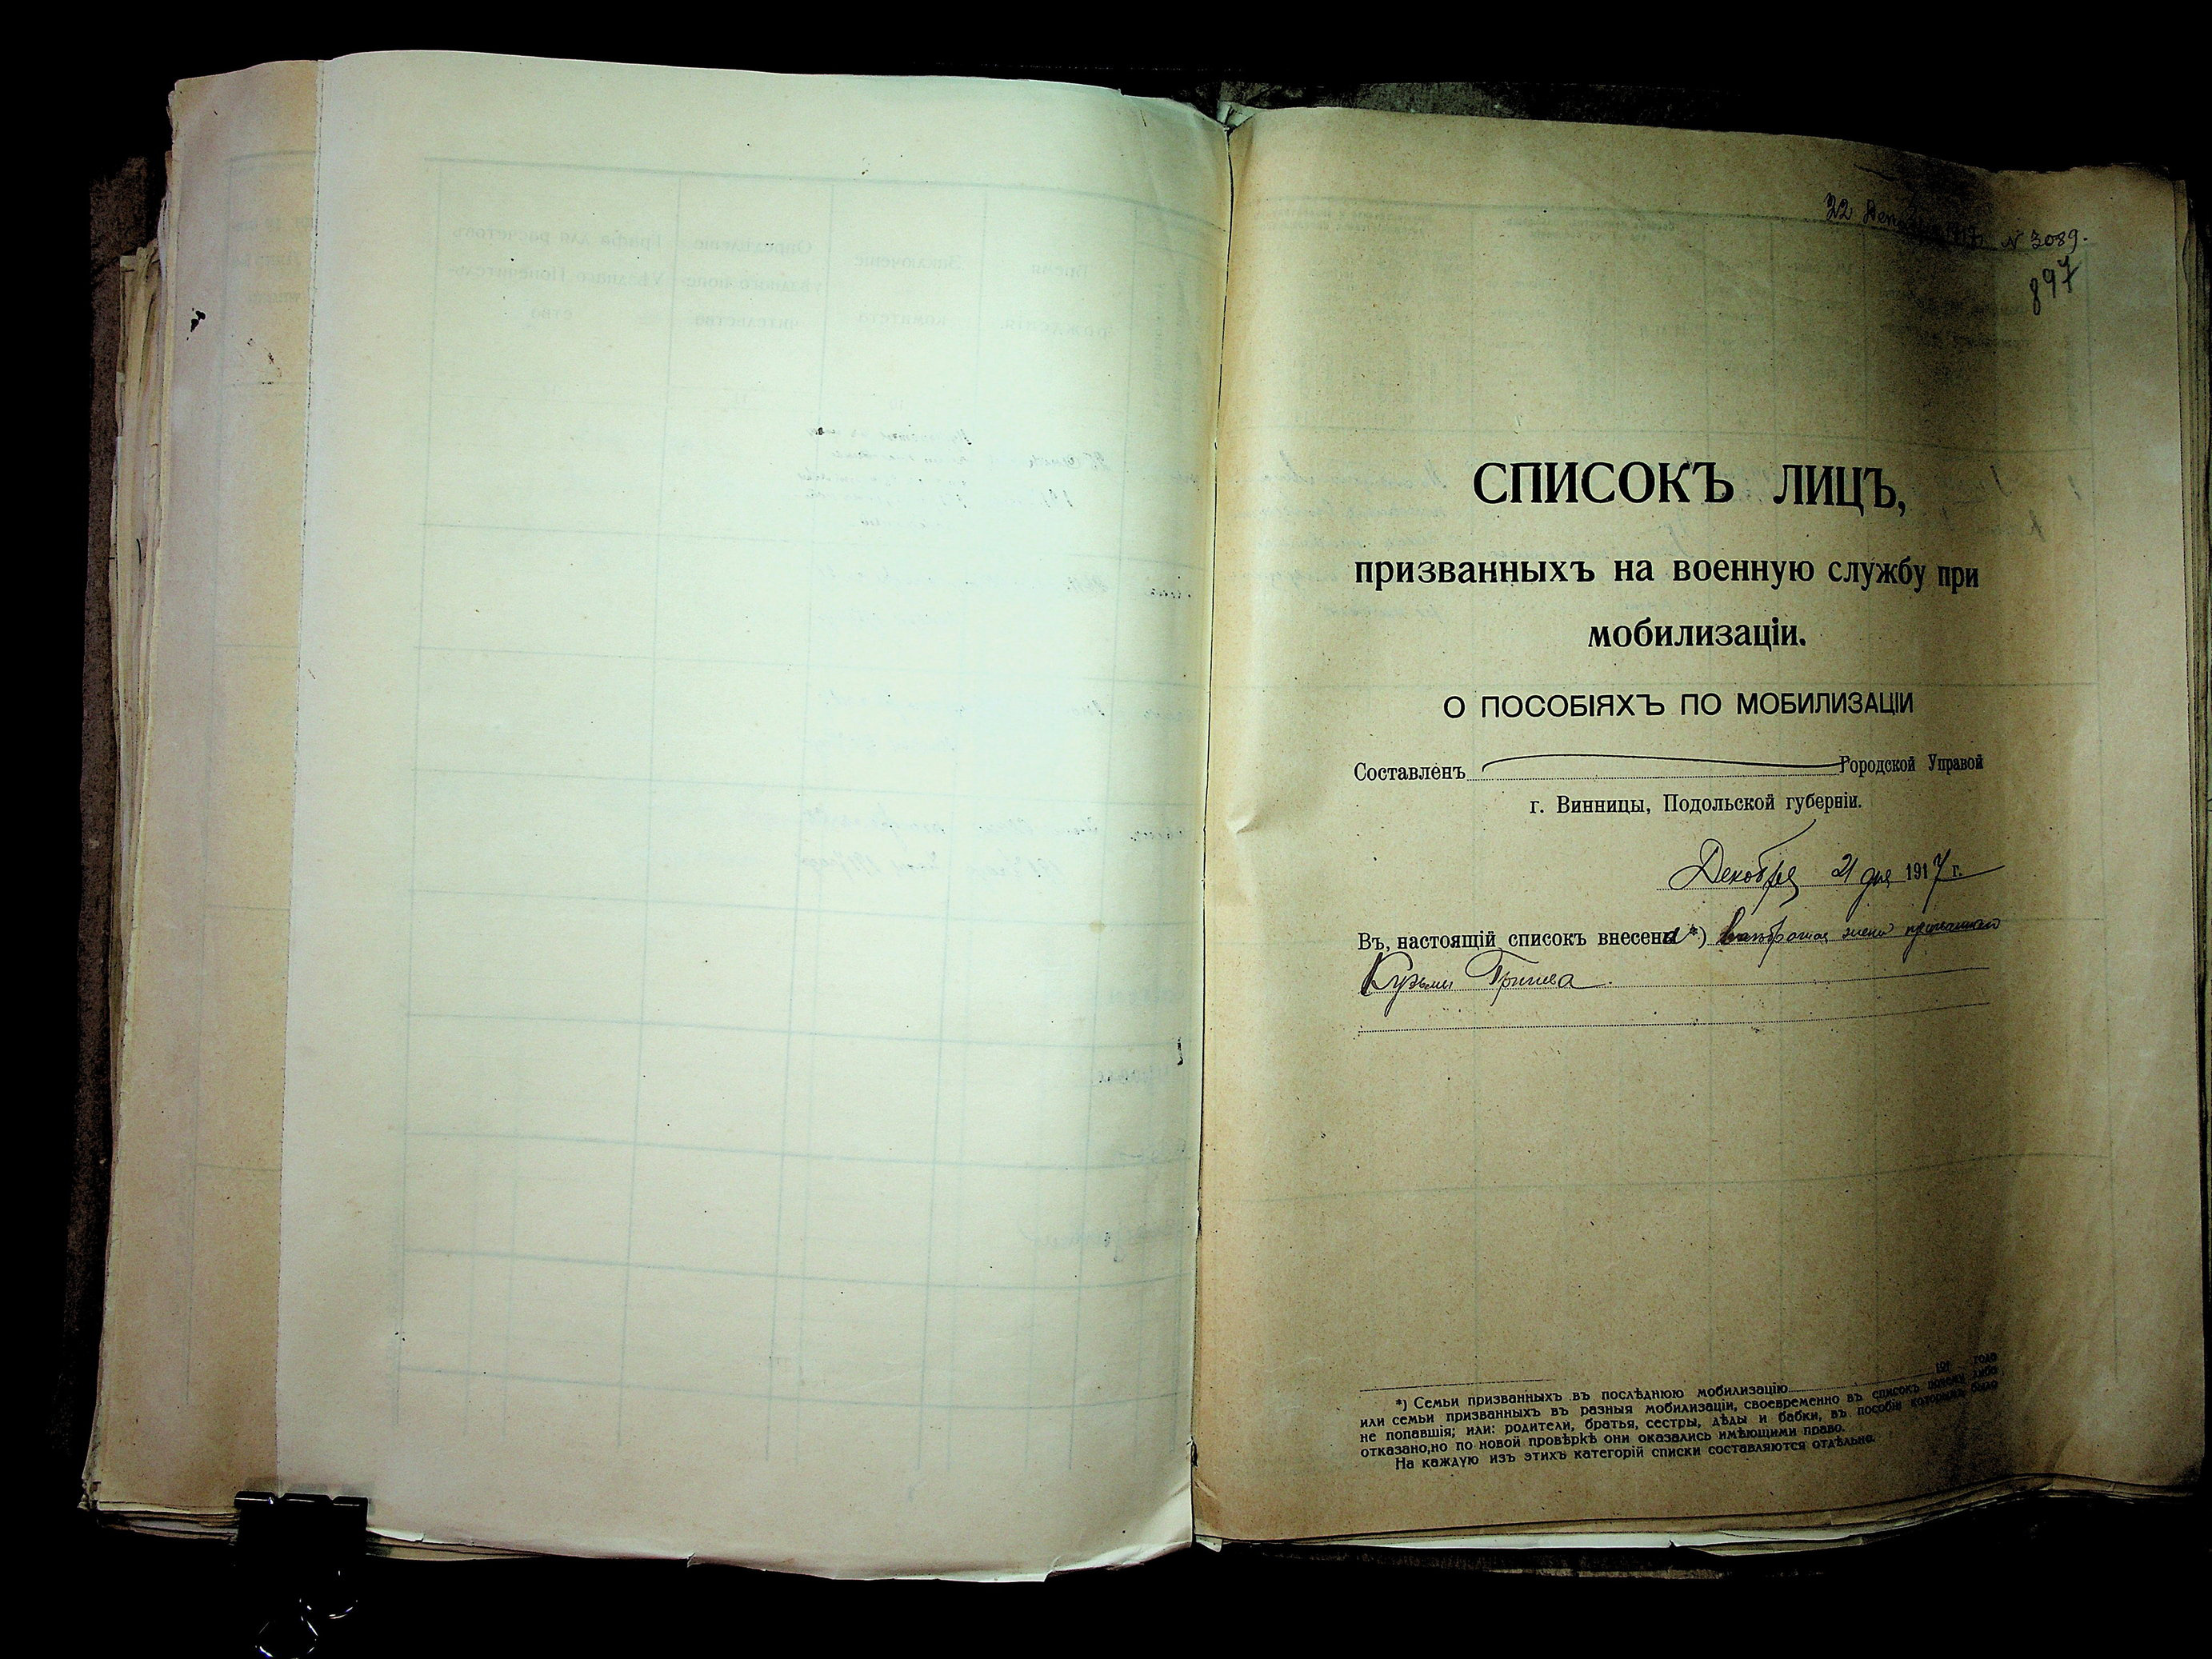 22 Декабря 1917 г. № 3089.
897
СПИСОКЪ ЛИЦЪ,
призванныхъ на военную службу при
мобилизаціи.
О ПОСОБІЯХЪ ПО МОБИЛИЗАЦІИ
Составленъ Городской Управой
г. Винницы, Подольской губерніи.
Декабря 21 дня 1917 г.
Въ настоящій списокъ внесена *) жена призваннаго
Кузьмы
*) Семьи призванныхъ въ послѣднюю мобилизацію 191 года
или семьи призванныхъ въ разныя мобилизаціи, своевременно въ списокъ почему либо
не попавшія; или: родители, братья, сестры, дѣды и бабки, въ пособіи которымъ было
отказано,но по новой провѣркѣ они оказались имѣющими право.
На каждую изъ этихъ категорій списки составляются отдѣльно.